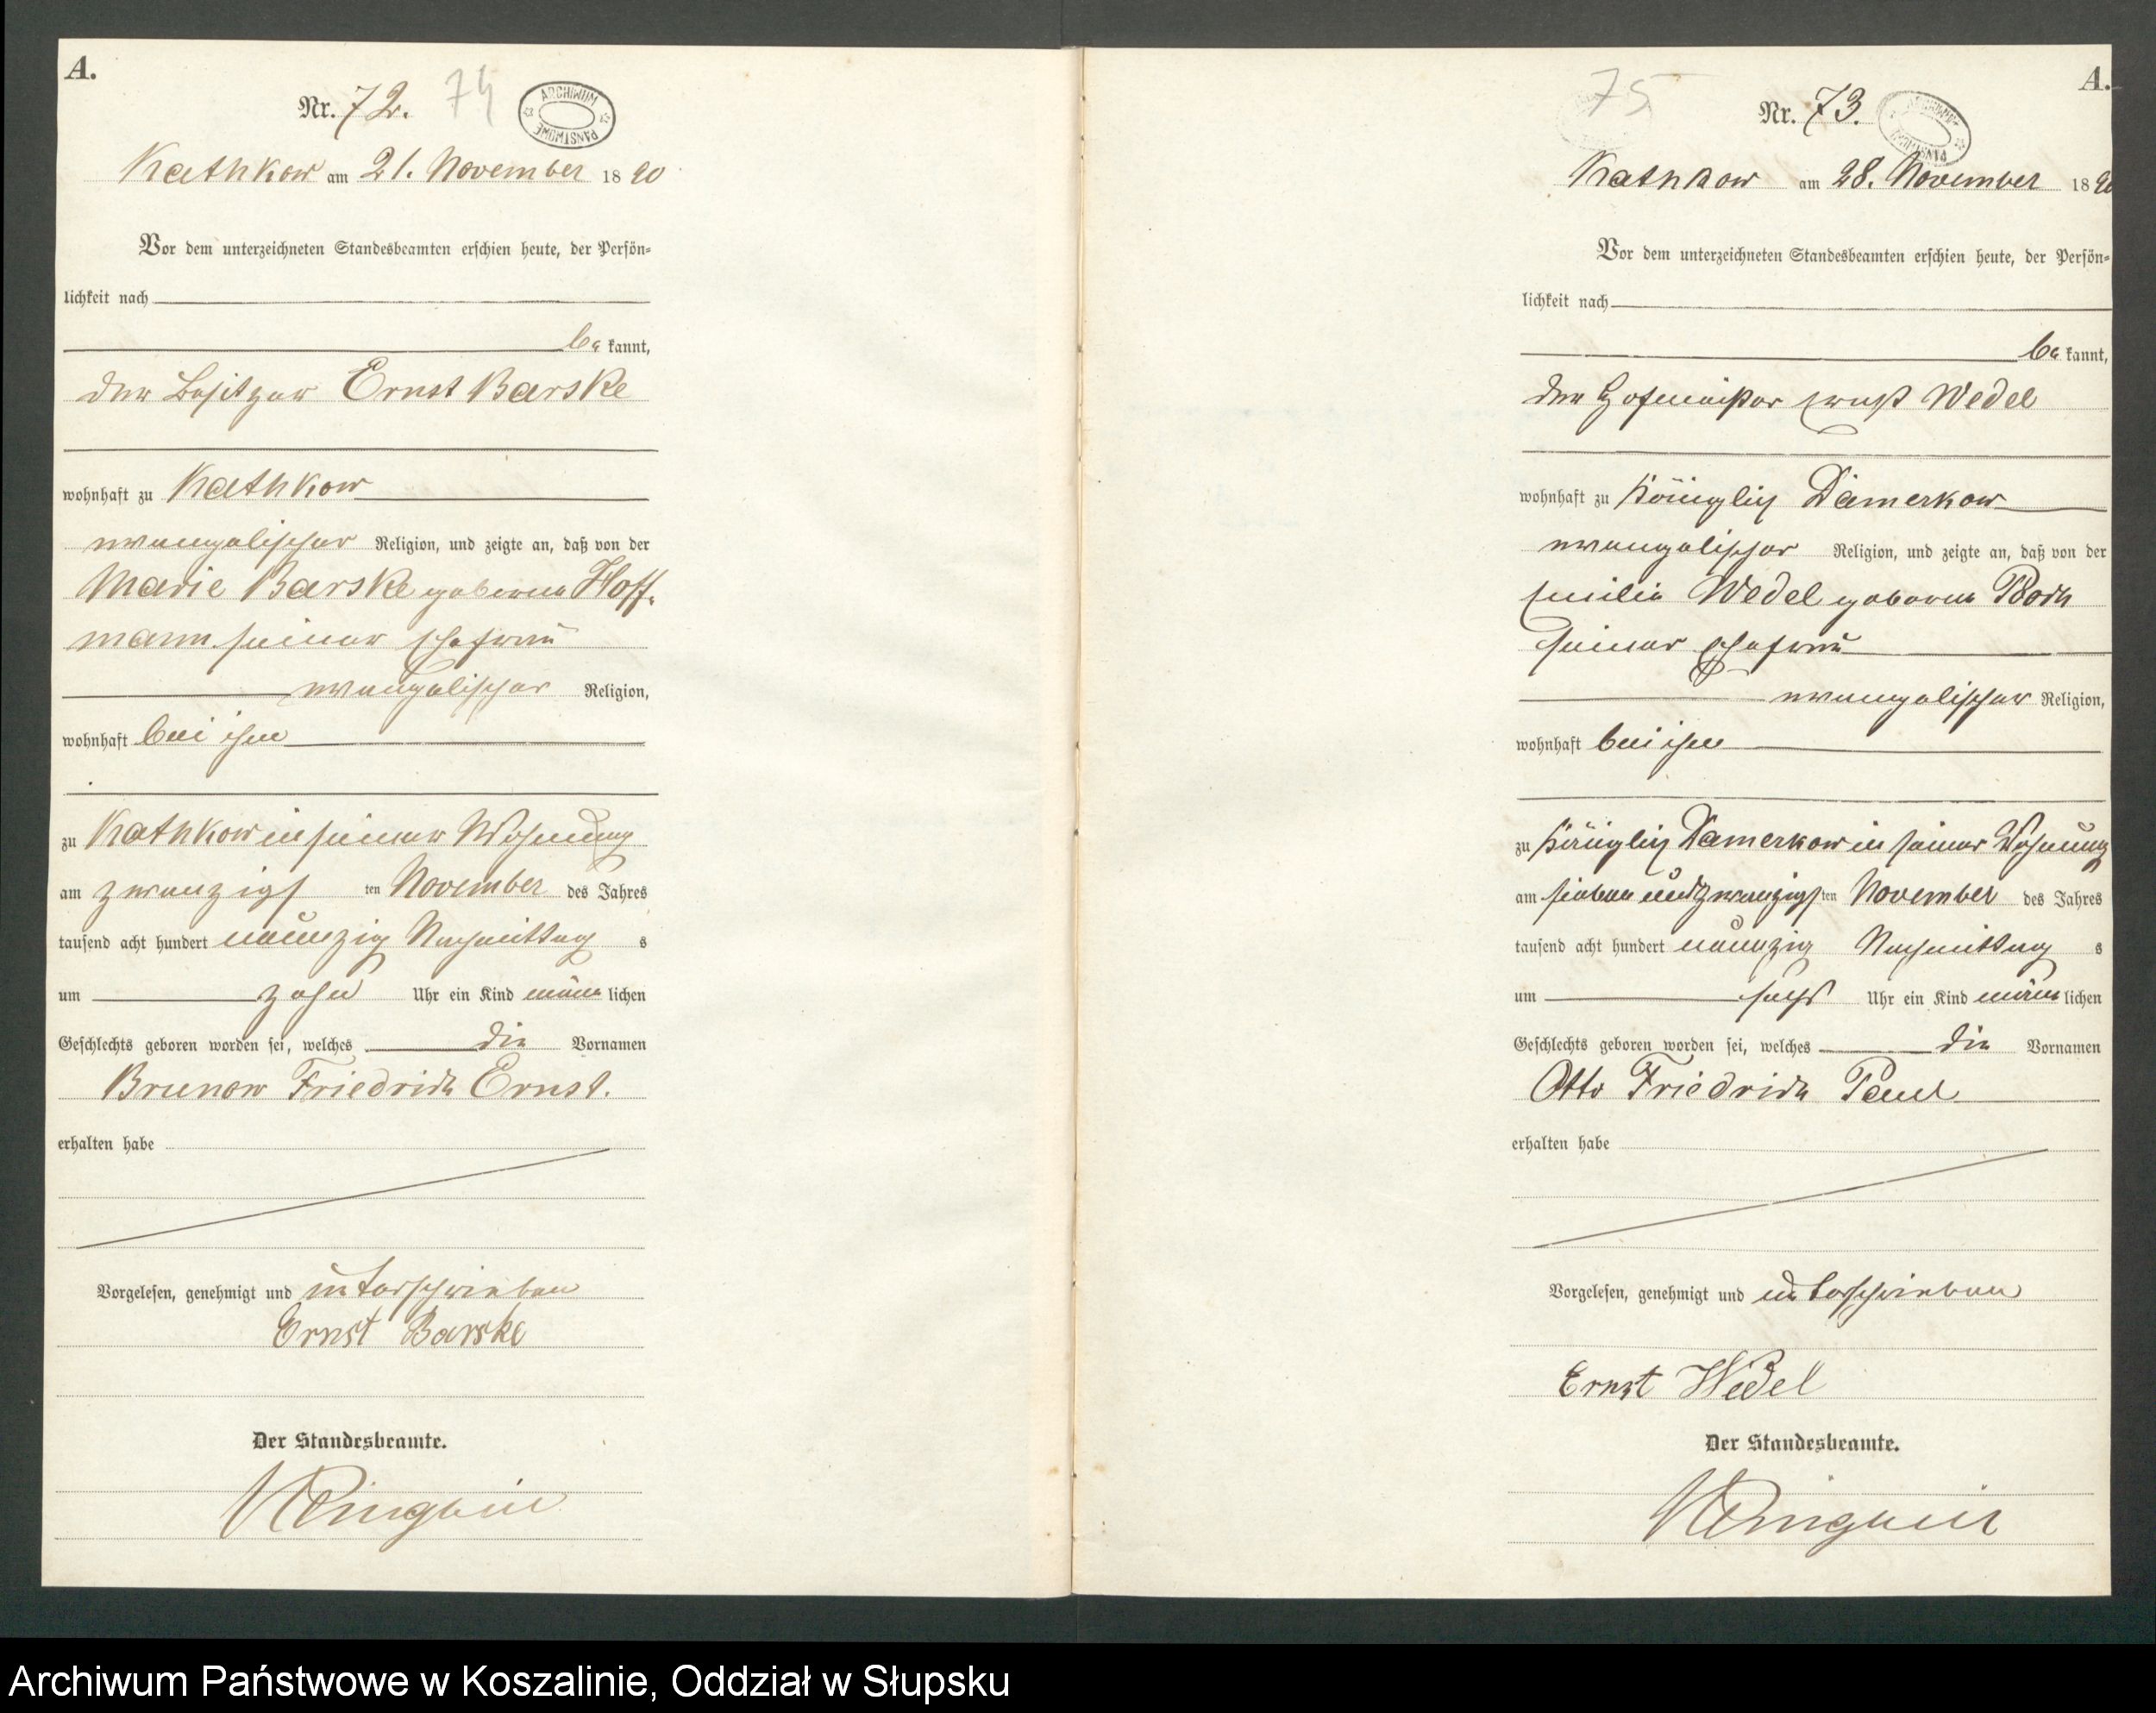 A.
Nr. 72. 74
ARCHIWUM PAŃSTWOWE
Kathkow am 21. November 1890
Vor dem unterzeichneten Standesbeamten erschien heute, der Persön-
lichkeit nach
be kannt,
der Besitzer Ernst Barske
wohnhaft zu Kathkow
evangelischer Religion, und zeigte an, daß von der
Marie Barske geborene Hoff-
mann seiner Ehefrau
evangelischer Religion,
wohnhaft bei ihm
zu Kathkow in seiner Wohnung
am zwanzigs ten November des Jahres
tausend acht hundert neunzig Nachmittag s
um zehn Uhr ein Kind männ lichen
Geschlechts geboren worden sei, welches die Vornamen
Brunow Friedrich Ernst.
erhalten habe
Vorgelesen, genehmigt und unterschrieben
Ernst Barske
Der Standesbeamte.
A.
75 Nr. 73.
ARCHIWUM PAŃSTWOWE
Kathkow am 28. November 1890
Vor dem unterzeichneten Standesbeamten erschien heute, der Persön-
lichkeit nach
be kannt,
der Hofmeister Ernst Wedel
wohnhaft zu Königlich Damerkow
evangelischer Religion, und zeigte an, daß von der
Emilie Wedel geborene Roch
seiner Ehefrau
evangelischer Religion,
wohnhaft bei ihm
zu Königlich Damerkow in seiner Wohnung
am siebenundzwanzigs ten November des Jahres
tausend acht hundert neunzig Nachmittag s
um sechs Uhr ein Kind männ lichen
Geschlechts geboren worden sei, welches die Vornamen
Otto Friedrich Paul
erhalten habe
Vorgelesen, genehmigt und unterschrieben
Ernst Wedel
Der Standesbeamte.
Archiwum Państwowe w Koszalinie, Oddział w Słupsku